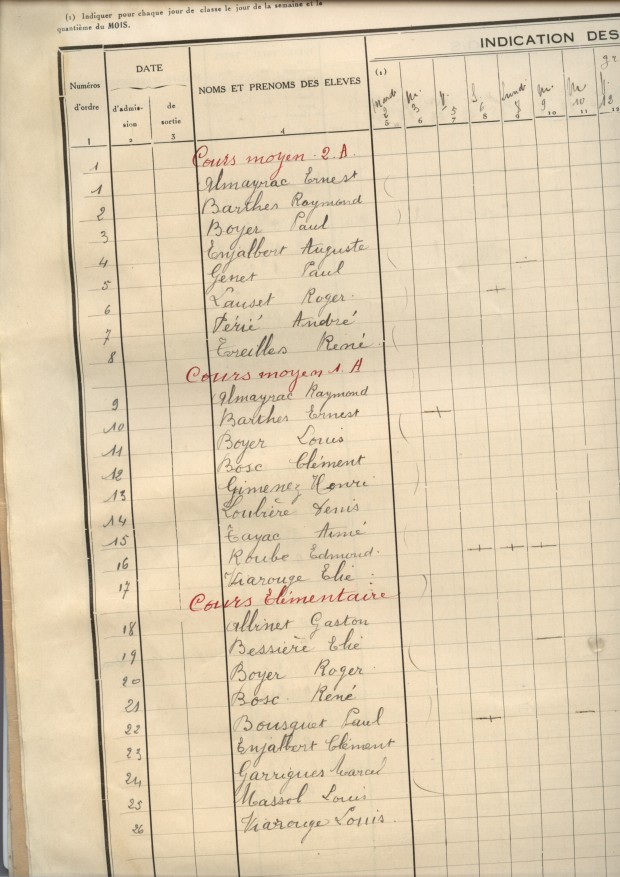 (1) Indiquer pour chaque jour de classe le jour de la semaine et le
quantième du MOIS.
INDICATION DES
Numéros
d'ordre
DATE
d'admis-
sion
de
sortie
NOMS ET PRENOMS DES ELEVES
(1)
Mardi 2
M. 3
V. 5
S. 6
Lundi 8
M. 9
M 10
12
1 2 3 4 5 6 7 8 9 10 11 12
1 Cours moyen 2 A
1 Almayrac Ernest
2 Barthes Raymond
3 Boyer Paul
4 Enjalbert Auguste
5 Genet Paul
6 Lauset Roger
7 Périé André
8 Treilles René
Cours moyen 1. A
9 Almayrac Raymond
10 Barthes Ernest
11 Boyer Louis
12 Bosc Clément
13 Gimenez Henri
14 Loubière Denis
15 Tayac Aimé
16 Roube Edmond.
17 Viarouge Elie
Cours Elémentaire
18 Albinet Gaston
19 Bessière Elie
20 Boyer Roger
21 Bosc René
22 Bousquet Paul
23 Enjalbert Clément
24 Garrigues Marcel
25 Massol Louis
26 Viarouge Louis